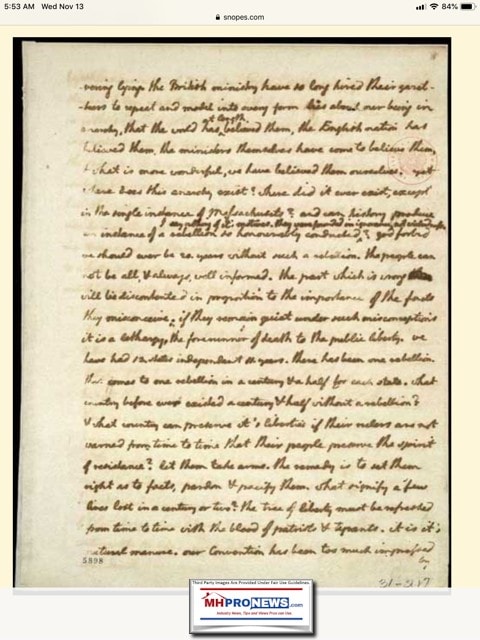 5:53 AM Wed Nov 13
84%
snopes.com
-vening lying. the British ministry have so long hired their gazet-
-teers to repeat and model into every form lies about our being in
anarchy, that the world has at length believed them, the English nation has
believed them, the ministers themselves have come to believe them,
& what is more wonderful, we have believed them ourselves. yet
where does this anarchy exist? where did it ever exist, except
in the single instance of Massachusets? and can history produce
I say nothing of it's motives. they were founded in ignorance, not wickedness.
an instance of a rebellion so honourably conducted? god forbid
we should ever be 20. years without such a rebellion. the people can
not be all, & always, well informed. the part which is wrong
will be discontented in proportion to the importance of the facts
they misconceive. if they remain quiet under such misconceptions
it is a lethargy, the forerunner of death to the public liberty. we
have had 13. states independant 11. years. there has been one rebellion.
that comes to one rebellion in a century & a half for each state. what
country before ever existed a century & half without a rebellion?
& what country can preserve it's liberties if their rulers are not
warned from time to time that their people preserve the spirit
of resistance? let them take arms. the remedy is to set them
right as to facts, pardon & pacify them. what signify a few
lives lost in a century or two? the tree of liberty must be refreshed
from time to time with the blood of patriots & tyrants. it is it's
natural manure. our Convention has been too much impressed
by
5898
Third Party Images Are Provided Under Fair Use Guidelines.
MHPRONEWS.com
Industry News, Tips and Views Pros can Use